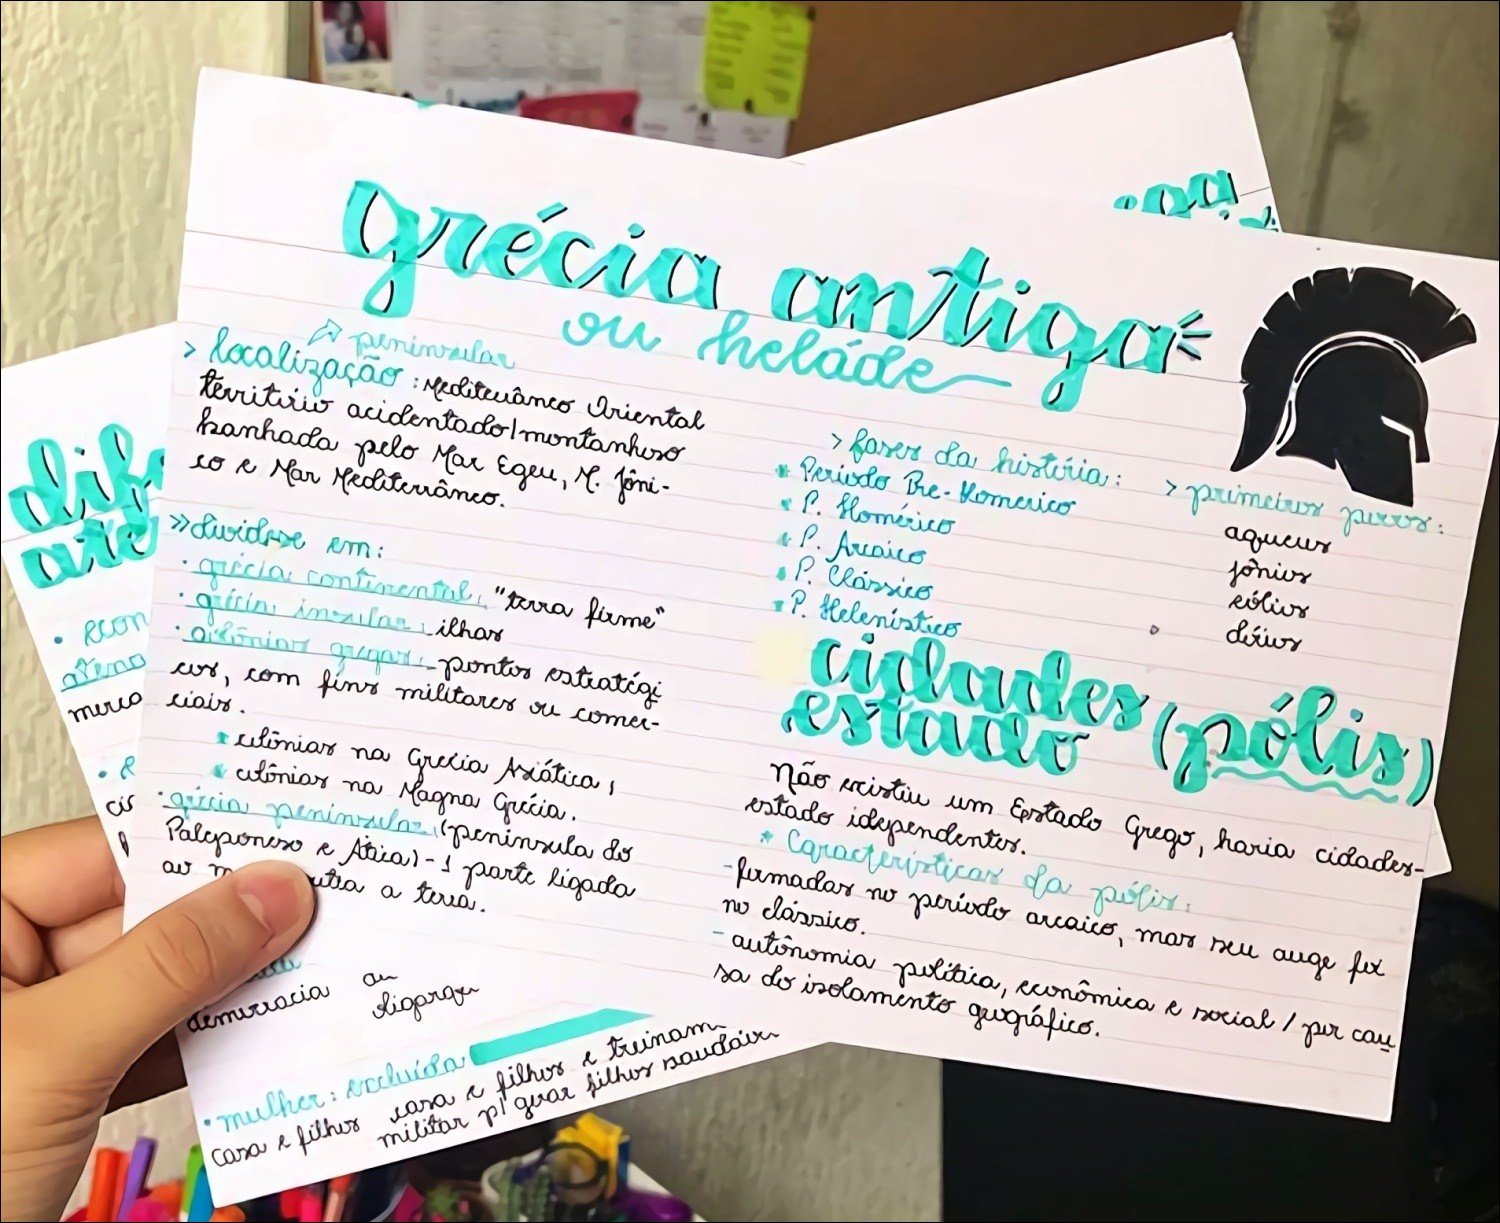 grécia antiga
ou heláde
peninsular
> localização: Mediterrâneo Oriental
território acidentado/montanhoso
banhada pelo Mar Egeu, M. Jôni-
co e Mar Mediterrâneo.
>> dividise em:
· grécia continental: "terra firme"
· grécia insular: ilhas
· colônias gregas: pontos estratégi
cos, com fins militares ou comer-
ciais.
* colônias na Grécia Asiática;
* colônias na Magna Grécia.
· grécia peninsular: (península do
Paleponeso e Ática) - 1 parte ligada
ao outra a terra.
> fases da história:
* Período Pré-Homerico
* P. Homérico
* P. Arcaico
* P. Clássico
* P. Helenístico
> primeiros povos:
aqueus
jônios
eólios
dórios
cidades
estado (pólis)
Não existiu um Estado Grego, havia cidades-
estado idependentes.
* Características da pólis:
- formadas no período arcaico, mas seu auge foi
no clássico.
- autônomia política, econômica e social / por cau
sa do isolamento geográfico.
dif
ate
· econ
atena
merca
democracia
oligarqu
· mulher: excluída
casa e filhos
casa e filhos e treinam
militar p/ gerar filhos saudáveis